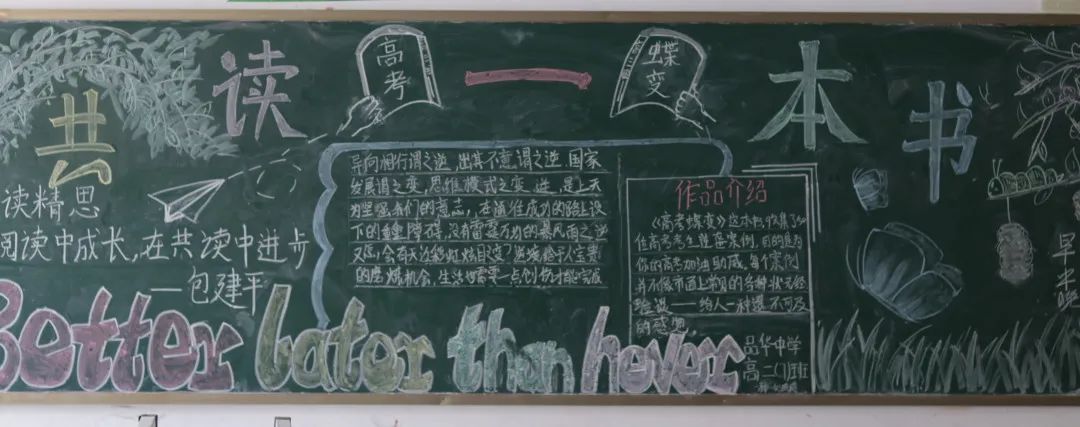 共读一本书
高考
蝶变
读精思
阅读中成长,在共读中进步
——包建平
导向相行谓之逆,出其不意谓之逆,国家
发展谓之变,思维模式之变,逆,是上天
为坚强我们的意志,在通往成功的路上设
下的重重障碍,没有雷霆万钧的暴风雨之逆
又怎会有天边彩虹炫目变?逆境给予人宝贵
的磨炼机会,生活也需要一点创伤才能完成
作品介绍
《高考蝶变》这本书,收集了
住高考考生逆袭案例,目的是为
你的高考加油助威,每个案例
并不像市面上常见的各种状元经
验谈——给人一种遥不可及
的感觉。
品华中学
高二(1)班
Better later than never